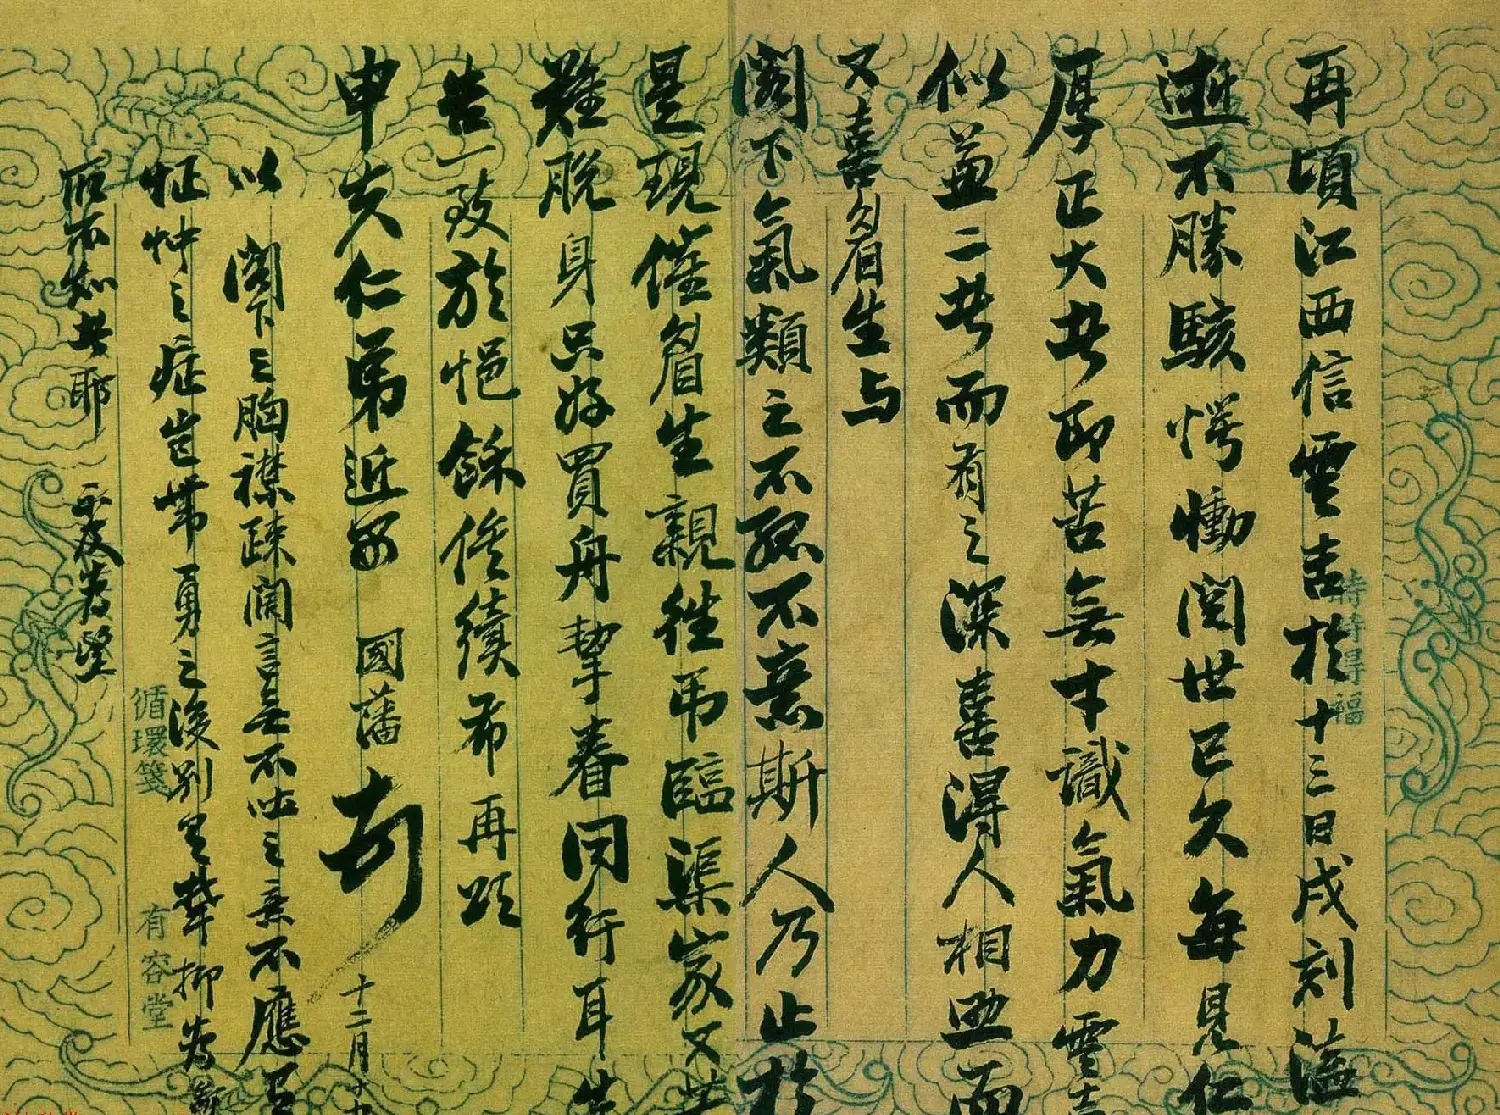 再頃江西信雲吉於十三日戌刻溘
逝不勝駭愕慟閔世已久每見仁
厚正大者即苦無才識氣力雲吉
似兼二者而有之深喜得人相助而
又喜眉生与
閣下氣類之不孤不意斯人乃止於
是現催眉生親往弔臨渠家又其
難脫身只好買舟挈眷同行耳先
告一致於悒餘俟續布再頌
申夫仁弟近安 國藩 十二月十九
以閣下之胸襟疎闊言其不吐之意不應有
怔忡之症豈帶勇之後別生鬱抑為新
耶
時時得福
循環箋
有容堂